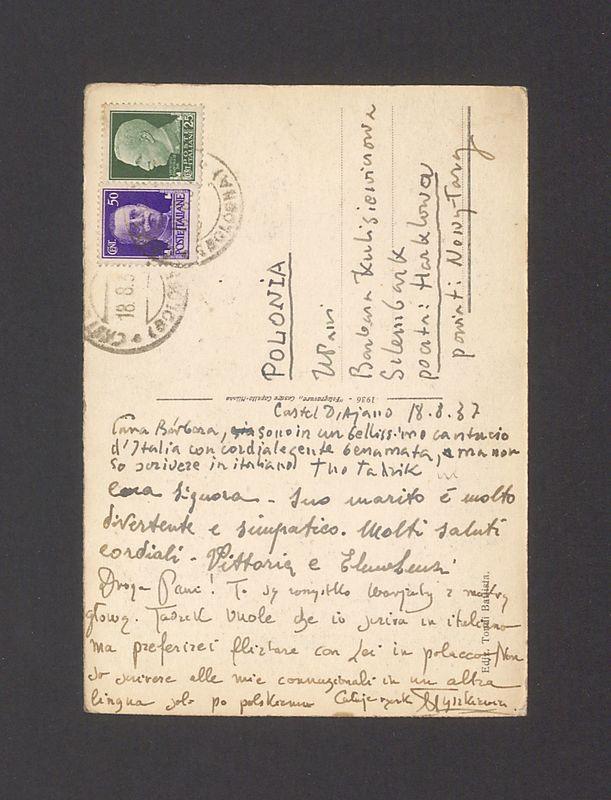 POSTE ITALIANE
CENT. 25
CENT. 50
POSTE ITALIANE
(BOLOGNA)
18.8.3
POLONIA
WPani
Barbara Kulisiewiczowa
Szlembark
poczta: Harklowa
powiat: Nowy Targ
1936 - "Fotogravure" Cesare Capello - Milano
Castel D'Ajano 18.8.37
Cara Barbara, sono in un bellissimo cantuccio
d'Italia con cordiale gente benamata, ma non
so scrivere in italiano Tuo Tadzik
Cara Signora - Suo marito è molto
divertente e simpatico. Molti saluti
cordiali - Vittoria e
Droga Pani! To są wszystko warjaty z
głową. Tadzik vuole che io scriva in italiano
ma preferirei con Lei in polacco. Non
so scrivere alle mie connazionali in un altra
lingua solo po polskiemu Całuję rączki
Ediz. Tondi Battista.